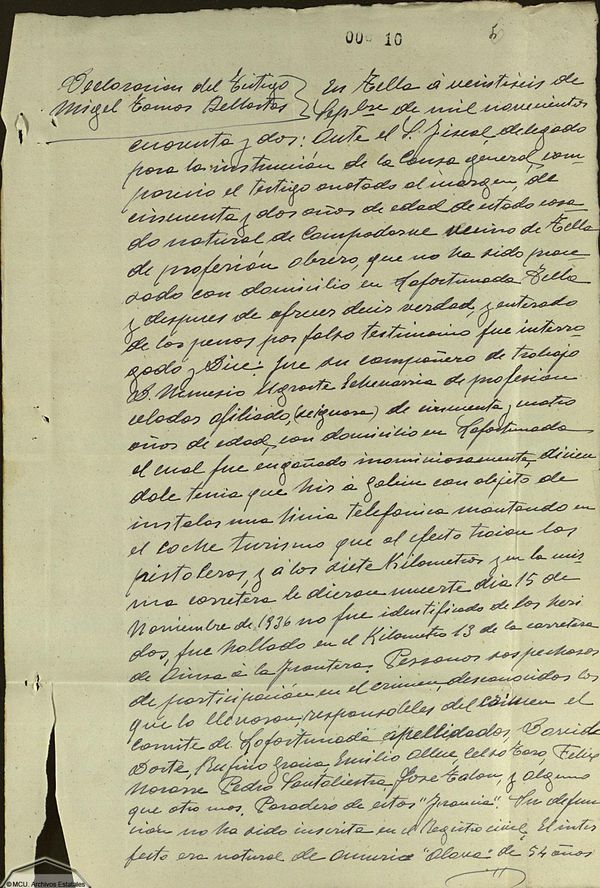 00 10
5
Declaracion del Testigo
Migel Ramos Bellostas
En Tella á veintiseis de
Sepbre de mil novecientos
cuarenta y dos: Ante el S. Fiscal delegado
para la instrucción de la Causa general, com
parecio el testigo anotado al margen, de
cincuenta y dos años de edad de estado casa
do natural de Campodarve vecino de Tella
de profesión obrero, que no ha sido proce
sado con domicilio en Lafortunada Tella
y despues de ofrecer decir verdad, y enterado
de las penas por falso testimonio fue interro
gado y Dice: Que su compañero de trabajo
D. Nemesio Ugarte Echevarria de profesión
celador afiliado, (se ignora) de cincuenta y cuatro
años de edad, con domicilio en Lafortunada
el cual fue engañado inominiosamente, dicien
dole tenia que hir á Salin con objeto de
instalar una linia telefonica montando en
el coche turismo que al efecto traian los
pistoleros, y á los siete Kilometros y en la mis
ma carretera le dieron muerte dia 15 de
Noviembre de 1936 no fue identificado de las heri
das, fue hallado en el Kilometro 13 de la carretera
de Ainsa á la frontera. Personas sospechosas
de participación en el crimen, desconocidos los
que lo llevaron, responsables del crimen el
Comite de Lafortunada apellidados,
Rufino Gracia, Emilio Celso Félix
Pedro Santaliestra, José y alguno
que otro mas. Paradero de estos "Francia". Su defun
ción no ha sido inscrita en el Registro civil, El inter
fecto era natural de Amurrio "Alava" de 54 años
© MCU. Archivos Estatales